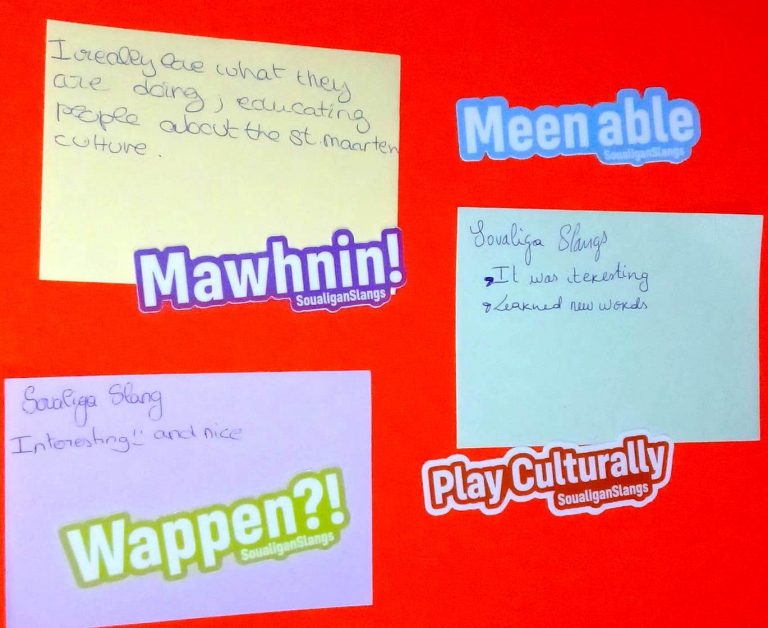 I really love what they
are doing, educating
people about the St. maarten
culture.
Mawhnin!
SoualiganSlangs
Meen able
SoualiganSlangs
Soualiga Slangs
It was iteresting
Learned new words
Play Culturally
SoualiganSlangs
Soualiga Slang
Interesting!! and nice
Wappen?!
SoualiganSlangs